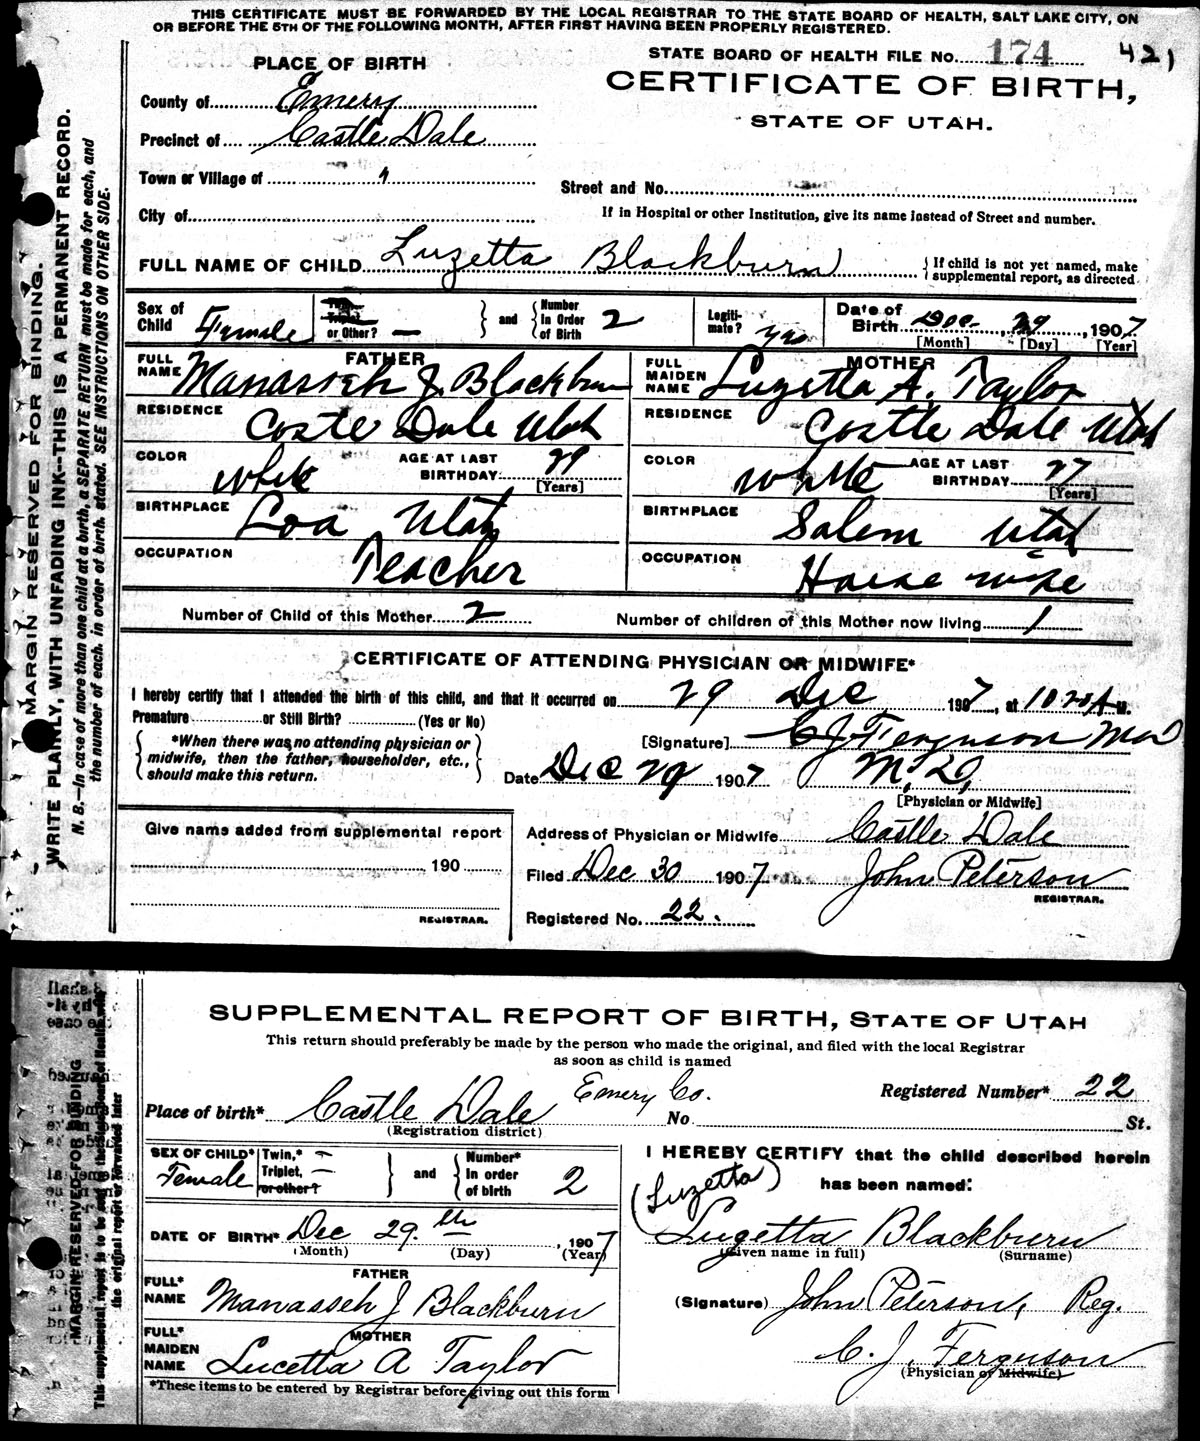 THIS CERTIFICATE MUST BE FORWARDED BY THE LOCAL REGISTRAR TO THE STATE BOARD OF HEALTH, SALT LAKE CITY, ON
OR BEFORE THE 5TH OF THE FOLLOWING MONTH, AFTER FIRST HAVING BEEN PROPERLY REGISTERED.
MARGIN RESERVED FOR BINDING.
WRITE PLAINLY, WITH UNFADING INK--THIS IS A PERMANENT RECORD.
N. B.—In case of more than one child at a birth, a SEPARATE RETURN must be made for each, and
the number of each, in order of birth, stated. SEE INSTRUCTIONS ON OTHER SIDE.
PLACE OF BIRTH
STATE BOARD OF HEALTH FILE No. 174 421
CERTIFICATE OF BIRTH,
STATE OF UTAH.
County of Emery
Precinct of Castle Dale
Town or Village of "
Street and No.
City of
If in Hospital or other Institution, give its name instead of Street and number.
FULL NAME OF CHILD Luzetta Blackburn { If child is not yet named, make supplemental report, as directed
Sex of Child Female Twin, Triplet, or Other? — } and { Number In Order of Birth 2 Legitimate? yes Date of Birth Dec. 29, 1907
[Month] [Day] [Year]
FATHER
FULL NAME Manasseh J Blackburn
RESIDENCE Coste Dale Utah
COLOR white AGE AT LAST BIRTHDAY 29 [Years]
BIRTHPLACE Loa Utah
OCCUPATION Teacher
MOTHER
FULL MAIDEN NAME Luzetta A. Taylor
RESIDENCE Costle Dale Utah
COLOR white AGE AT LAST BIRTHDAY 27 [Years]
BIRTHPLACE Salem Utah
OCCUPATION House wife
Number of Child of this Mother 2 Number of children of this Mother now living 1
CERTIFICATE OF ATTENDING PHYSICIAN OR MIDWIFE*
I hereby certify that I attended the birth of this child, and that it occurred on 29 Dec 1907, at 10 20 A M.
Premature or Still Birth? (Yes or No)
{ *When there was no attending physician or midwife, then the father, householder, etc., should make this return. }
[Signature] C J Ferguson MD
Date Dec 29 1907 M. D.
[Physician or Midwife]
Give name added from supplemental report
190
REGISTRAR.
Address of Physician or Midwife Castle Dale
Filed Dec 30 1907 John Peterson
REGISTRAR.
Registered No. 22.
MARGIN RESERVED FOR BINDING
SUPPLEMENTAL REPORT OF BIRTH, STATE OF UTAH
This return should preferably be made by the person who made the original, and filed with the local Registrar
as soon as child is named
Registered Number* 22
Place of birth* Castle Dale Emery Co. No St.
(Registration district)
SEX OF CHILD* Female Twin,* — Triplet, — or other? } and { Number* in order of birth 2
DATE OF BIRTH* Dec 29.th, 1907
(Month) (Day) (Year)
FATHER
FULL* NAME Manasseh J Blackburn
MOTHER
FULL* MAIDEN NAME Lucetta A Taylor
*These items to be entered by Registrar before giving out this form
I HEREBY CERTIFY that the child described herein
has been named:
(Luzetta)
Lugetta Blackburn
(Given name in full) (Surname)
(Signature) John Peterson, Reg.
C. J. Ferguson
(Physician or Midwife)